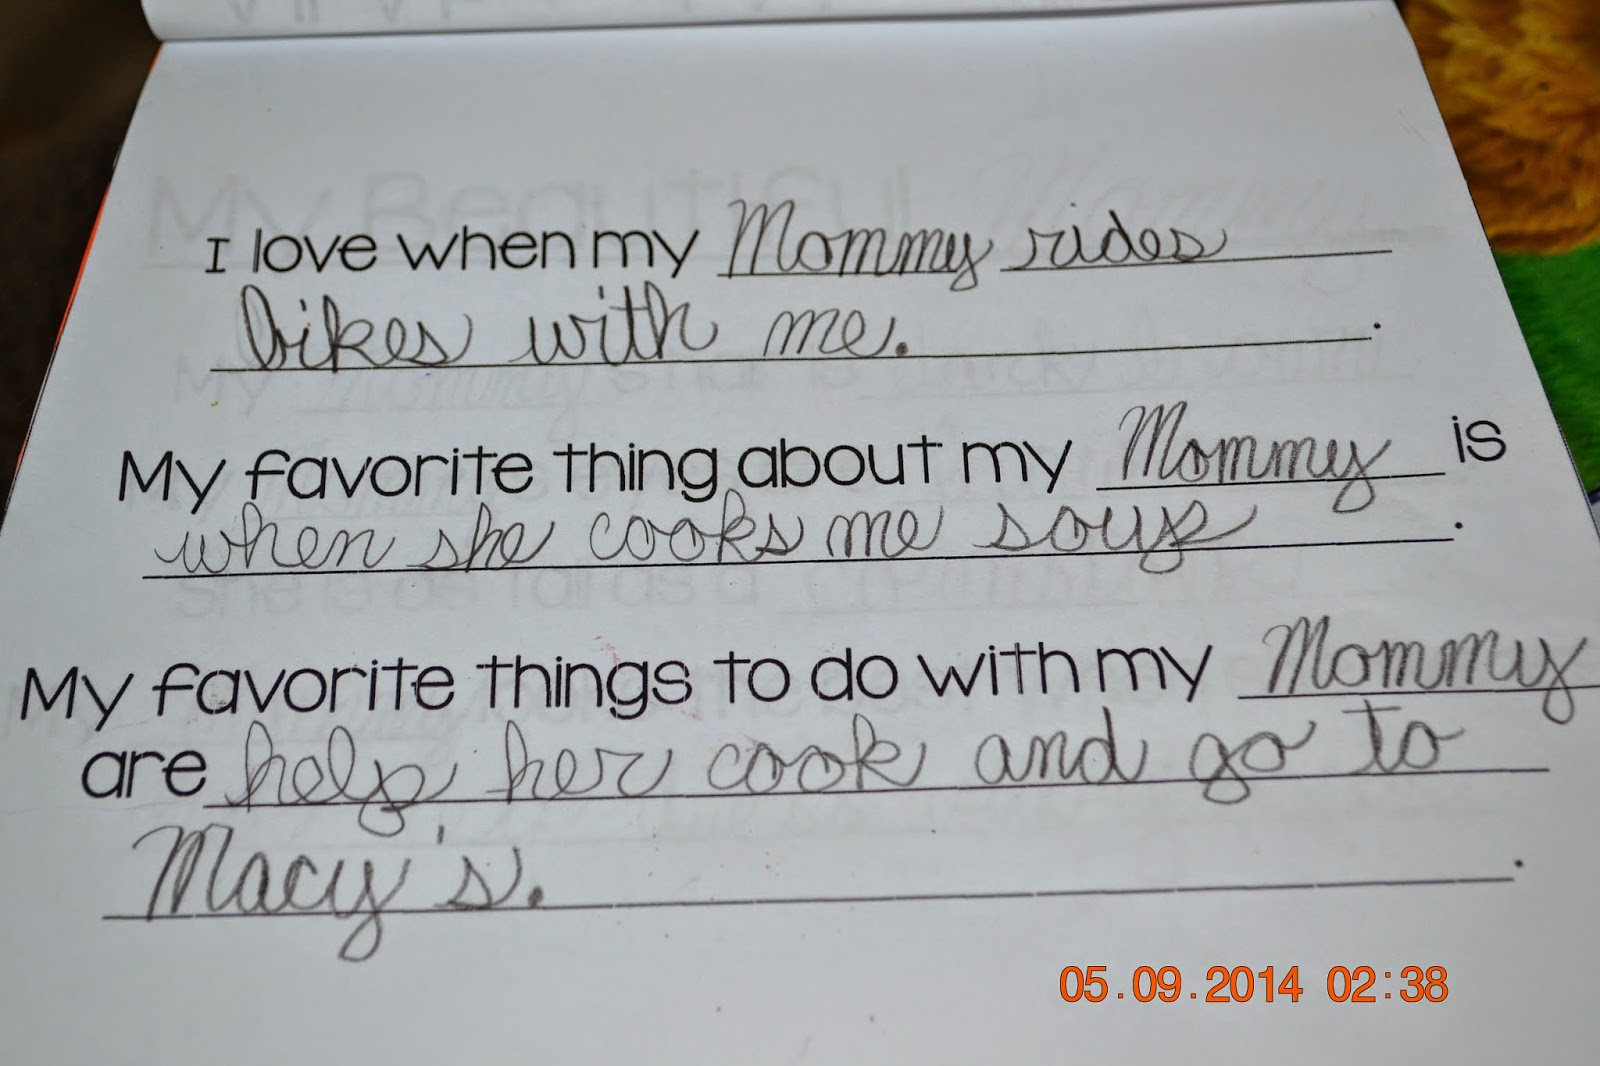 My Beautiful Mommy
I love when my Mommy rides
bikes with me. .
My favorite thing about my Mommy is
when she cooks me soup .
My favorite things to do with my Mommy
are help her cook and go to
Macy's. .
05.09.2014 02:38